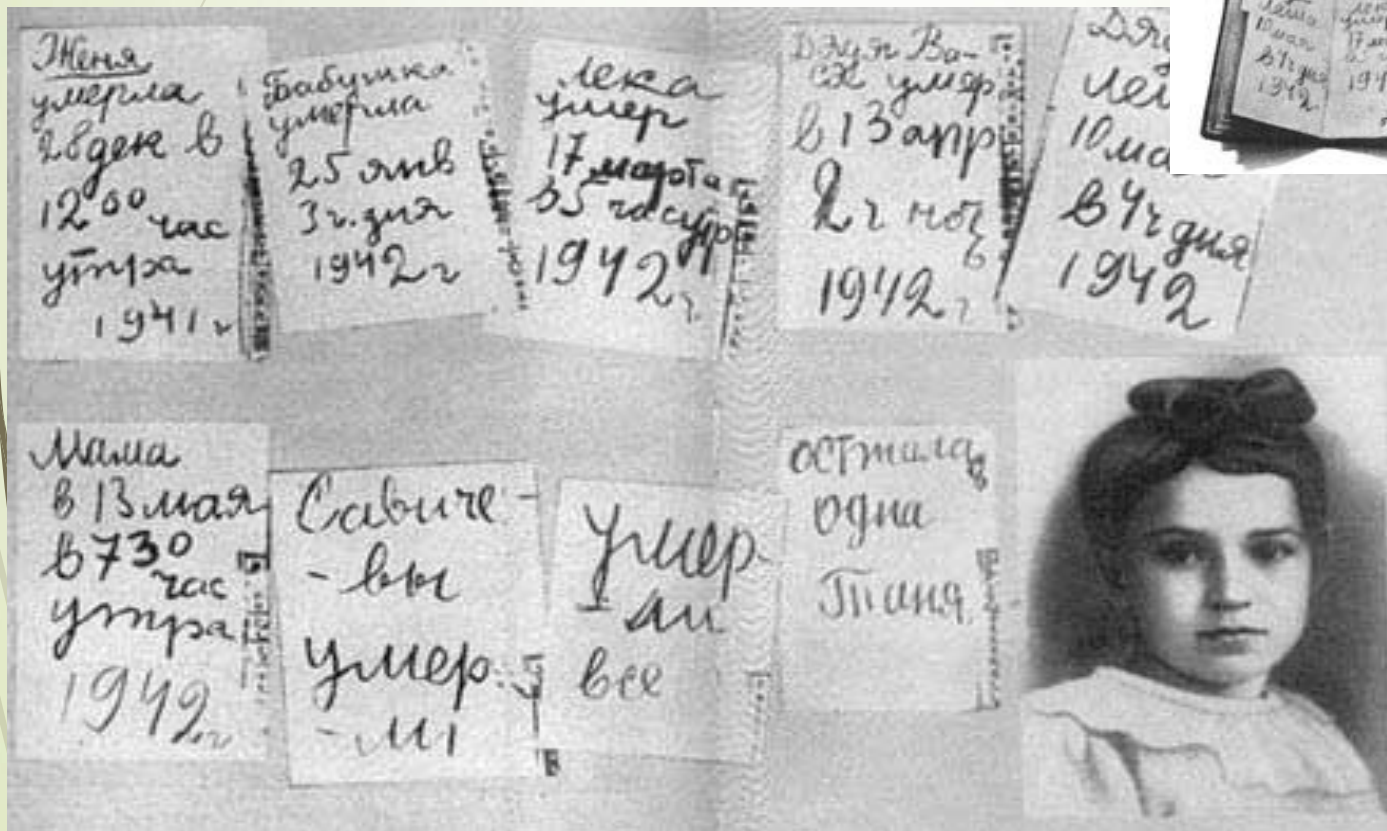 Женя
умерла
28 дек в
12⁰⁰ час
утра
1941 г
Бабушка
умерла
25 янв
3 ч. дня
1942 г
Лека
умер
17 марта
в 5 час утр
1942 г.
Дядя Ва-
ся умер
в 13 апр
2 ч ноч
ь
1942 г
Дя
Ле
10 ма
в 4 ч дня
1942
Мама
в 13 мая
в 7 30
час
утра
1942 г
Савиче-
-вы
умер-
-ли
Умер-
-ли
все
осталась
одна
Таня
10 мая
в 4ч дня
1942